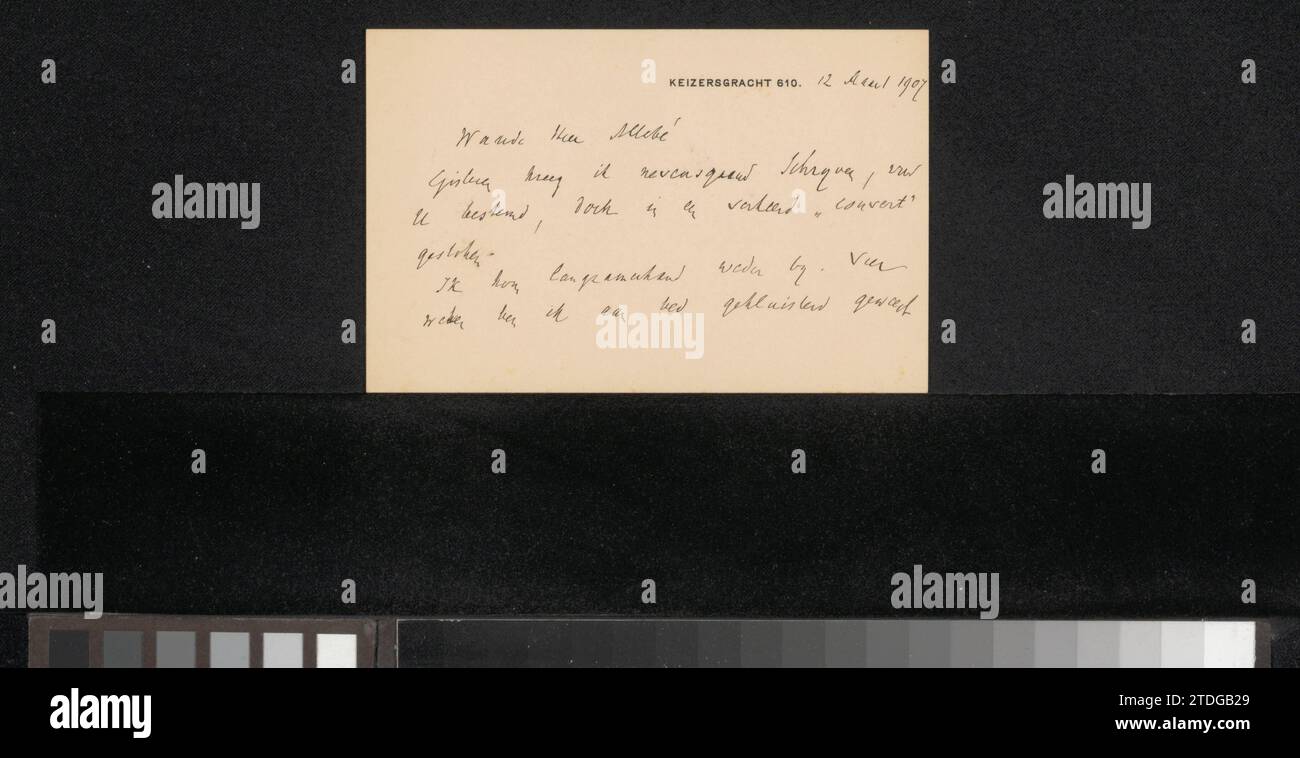 KEIZERSGRACHT 610. 12 Maart 1907
Waarde Heer Allebé
Gisteren kreeg ik nevensgaand schryven, voor
U bestemd, doch in en verkeerd „couvert"
gestoken.
Ik kom langzamerhand weder by. Vier
weken ben ik aan bed gekluisterd geweest
alamy
Image ID: 2TDGB29
www.alamy.com